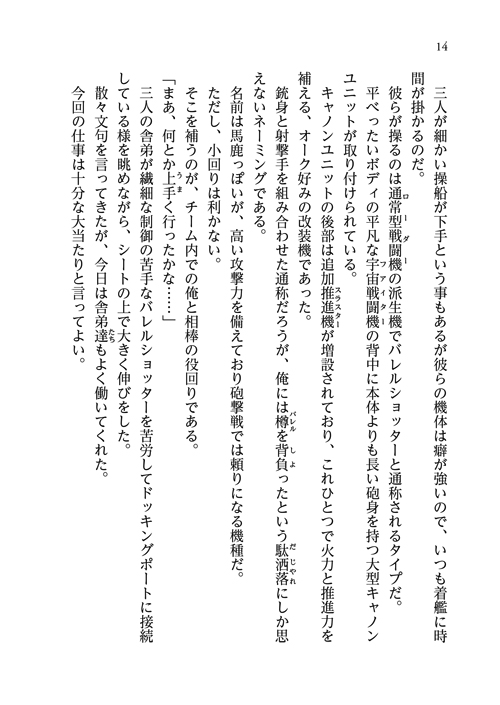 14
三人が細かい操船が下手という事もあるが彼らの機体は癖が強いので、いつも着艦に時
間が掛かるのだ。
彼らが操るのは通常型戦闘機の派生機でバレルショッターと通称されるタイプだ。
ローダー
平べったいボディの平凡な宇宙戦闘機の背中に本体よりも長い砲身を持つ大型キャノン
ファイター
ユニットが取り付けられている。
キャノンユニットの後部は追加推進機が増設されており、これひとつで火力と推進力を
スラスター
補える、オーク好みの改装機であった。
銃身と射撃手を組み合わせた通称だろうが、俺には樽を背負ったという駄洒落にしか思
バレル しょ だじゃれ
えないネーミングである。
名前は馬鹿っぽいが、高い攻撃力を備えており砲撃戦では頼りになる機種だ。
ただし、小回りは利かない。
そこを補うのが、チーム内での俺と相棒の役回りである。
「まあ、何とか上手く行ったかな……」
うま
三人の舎弟が繊細な制御の苦手なバレルショッターを苦労してドッキングポートに接続
している様を眺めながら、シートの上で大きく伸びをした。
散々文句を言ってきたが、今日は舎弟達もよく働いてくれた。
たち
今回の仕事は十分な大当たりと言ってよい。